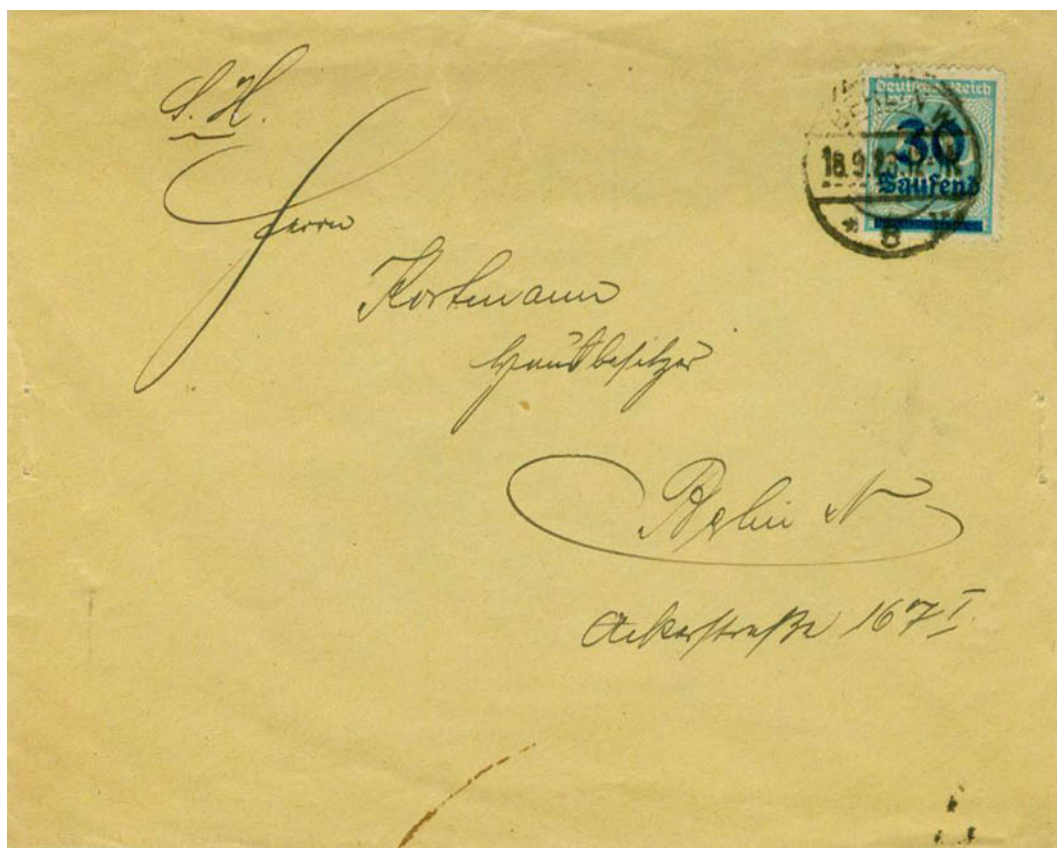 S. H.
Herrn
Kortmann
Hausbesitzer
Berlin N
Ackerstraße 167 I
Deutsches Reich
30
Tausend
BERLIN W
18.9.23.
* 8